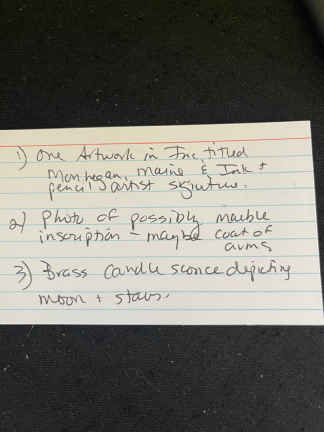 1) One Artwork in Inc, titled
Monhegan, Maine & Ink +
pencil artist signature.
2) Photo of possibly marble
inscription - maybe coat of
arms
3) Brass Candle sconce depicting
moon + stars.